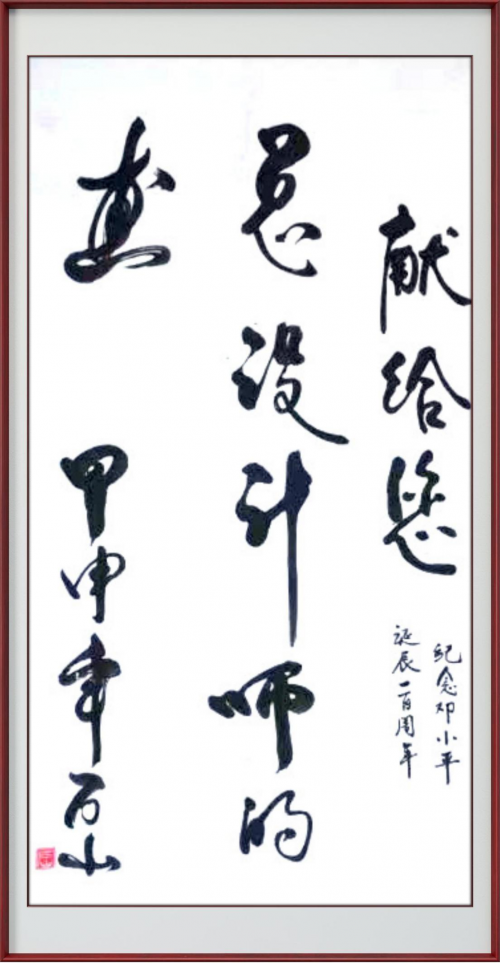 献给您
纪念邓小平
诞辰一百周年
总设计师的
甲申年